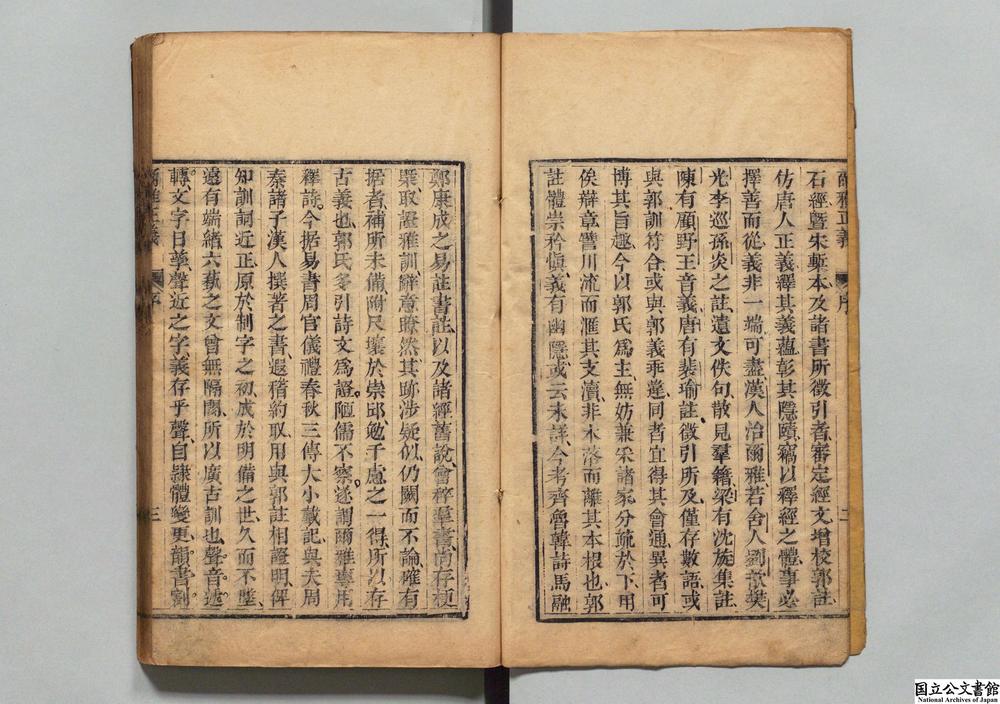 爾雅正義 序 二
石經曁宋槧本及諸書所徵引者審定經文增校郭註
仿唐人正義繹其義蘊彰其隱賾竊以釋經之體事必
擇善而從義非一端可盡漢人治爾雅若舍人劉歆樊
光李巡孫炎之註遺文佚句散見羣籍梁有沈旋集註
陳有顧野王音義唐有裴瑜註徵引所及僅存數語或
與郭訓符合或與郭義乖違同者宜得其會通異者可
博其旨趣今以郭氏爲主無妨兼采諸家分疏於下用
俟辯章譬川流而滙其支瀆非木落而離其本根也郭
註體崇矜愼義有幽隱或云未詳今考齊魯韓詩馬融
鄭康成之易註書註以及諸經舊說會稡羣書尚存梗
槩取證雅訓辭意瞭然其跡涉疑似仍闕而不論確有
据者補所未備附尺壤於崇邱勉千慮之一得所以存
古義也郭氏多引詩文爲證陋儒不察遂謂爾雅專用
釋詩今据易書周官儀禮春秋三傳大小戴記與夫周
秦諸子漢人撰著之書遐稽約取用與郭註相證明俾
知訓詞近正原於制字之初成於明備之世久而不墜
遠有端緒六藝之文曾無隔閡所以廣古訓也聲音遞
轉文字日孳聲近之字義存乎聲自隷體變更韻書割
爾雅正義 序 三
国立公文書館
National Archives of Japan